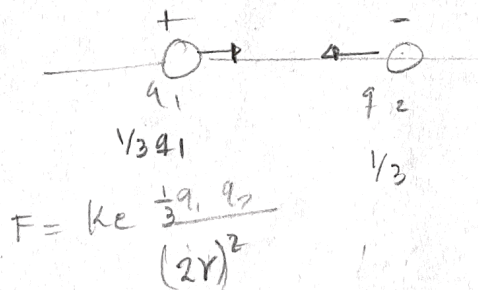 + -
q₁ q₂
1/3 q₁ 1/3
F = Ke 1/3 q₁ q₂ / (2r)²